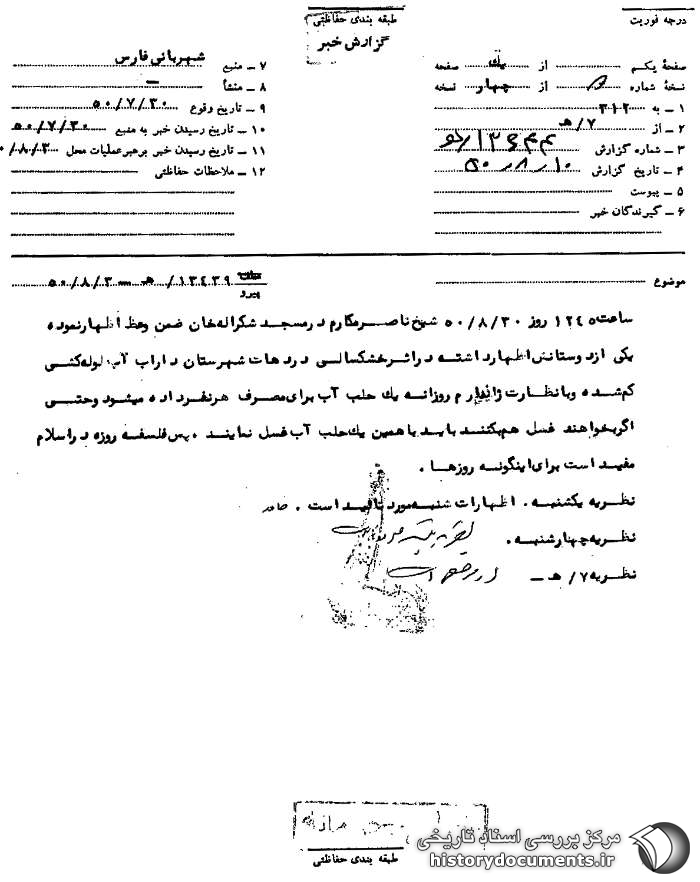 درجه فوریت
طبقه بندی حفاظتی
گزارش خبر
صفحهٔ یکم از یک صفحه
نسخهٔ شماره از چهار نسخه
۱ ـ به ۳۱۲
۲ ـ از ۷/هـ
۳ ـ شماره گزارش
۴ ـ تاریخ گزارش ۵۰/۸/۱۰
۵ ـ پیوست
۶ ـ گیرندگان خبر
۷ ـ منبع شهربانی فارس
۸ ـ منشأ ـ
۹ ـ تاریخ وقوع ۵۰/۷/۳۰
۱۰ ـ تاریخ رسیدن خبر به منبع ۵۰/۷/۳۰
۱۱ ـ تاریخ رسیدن خبر برهبرعملیات محل ۰/۸/۳
۱۲ ـ ملاحظات حفاظتی
موضوع
پیرو ۱۳۴۳۹/هـ ـ ۵۰/۸/۳
ساعت ۱۲۴۵ روز ۵۰/۸/۳۰ شیخ ناصر مکارم در مسجد شکراله خان ضمن وعظ اظهار نموده
یکی از دوستانش اظهار داشته در اثر خشکسالی در دهات شهرستان داراب آب لوله کشی
کم شده و با نظارت ژاندارم روزانه یک حلب آب برای مصرف هر نفر داده میشود و حتی
اگر بخواهند غسل هم بکنند باید با همین یک حلب آب غسل نمایند . پس فلسفه روزه در اسلام
مفید است برای اینگونه روزها .
نظریه یکشنبه . اظهارات شنبه مورد تائید است .
نظریه چهارشنبه .
نظریه ۷/هـ ـ
طبقه بندی حفاظتی
مرکز بررسی اسناد تاریخی
historydocuments.ir